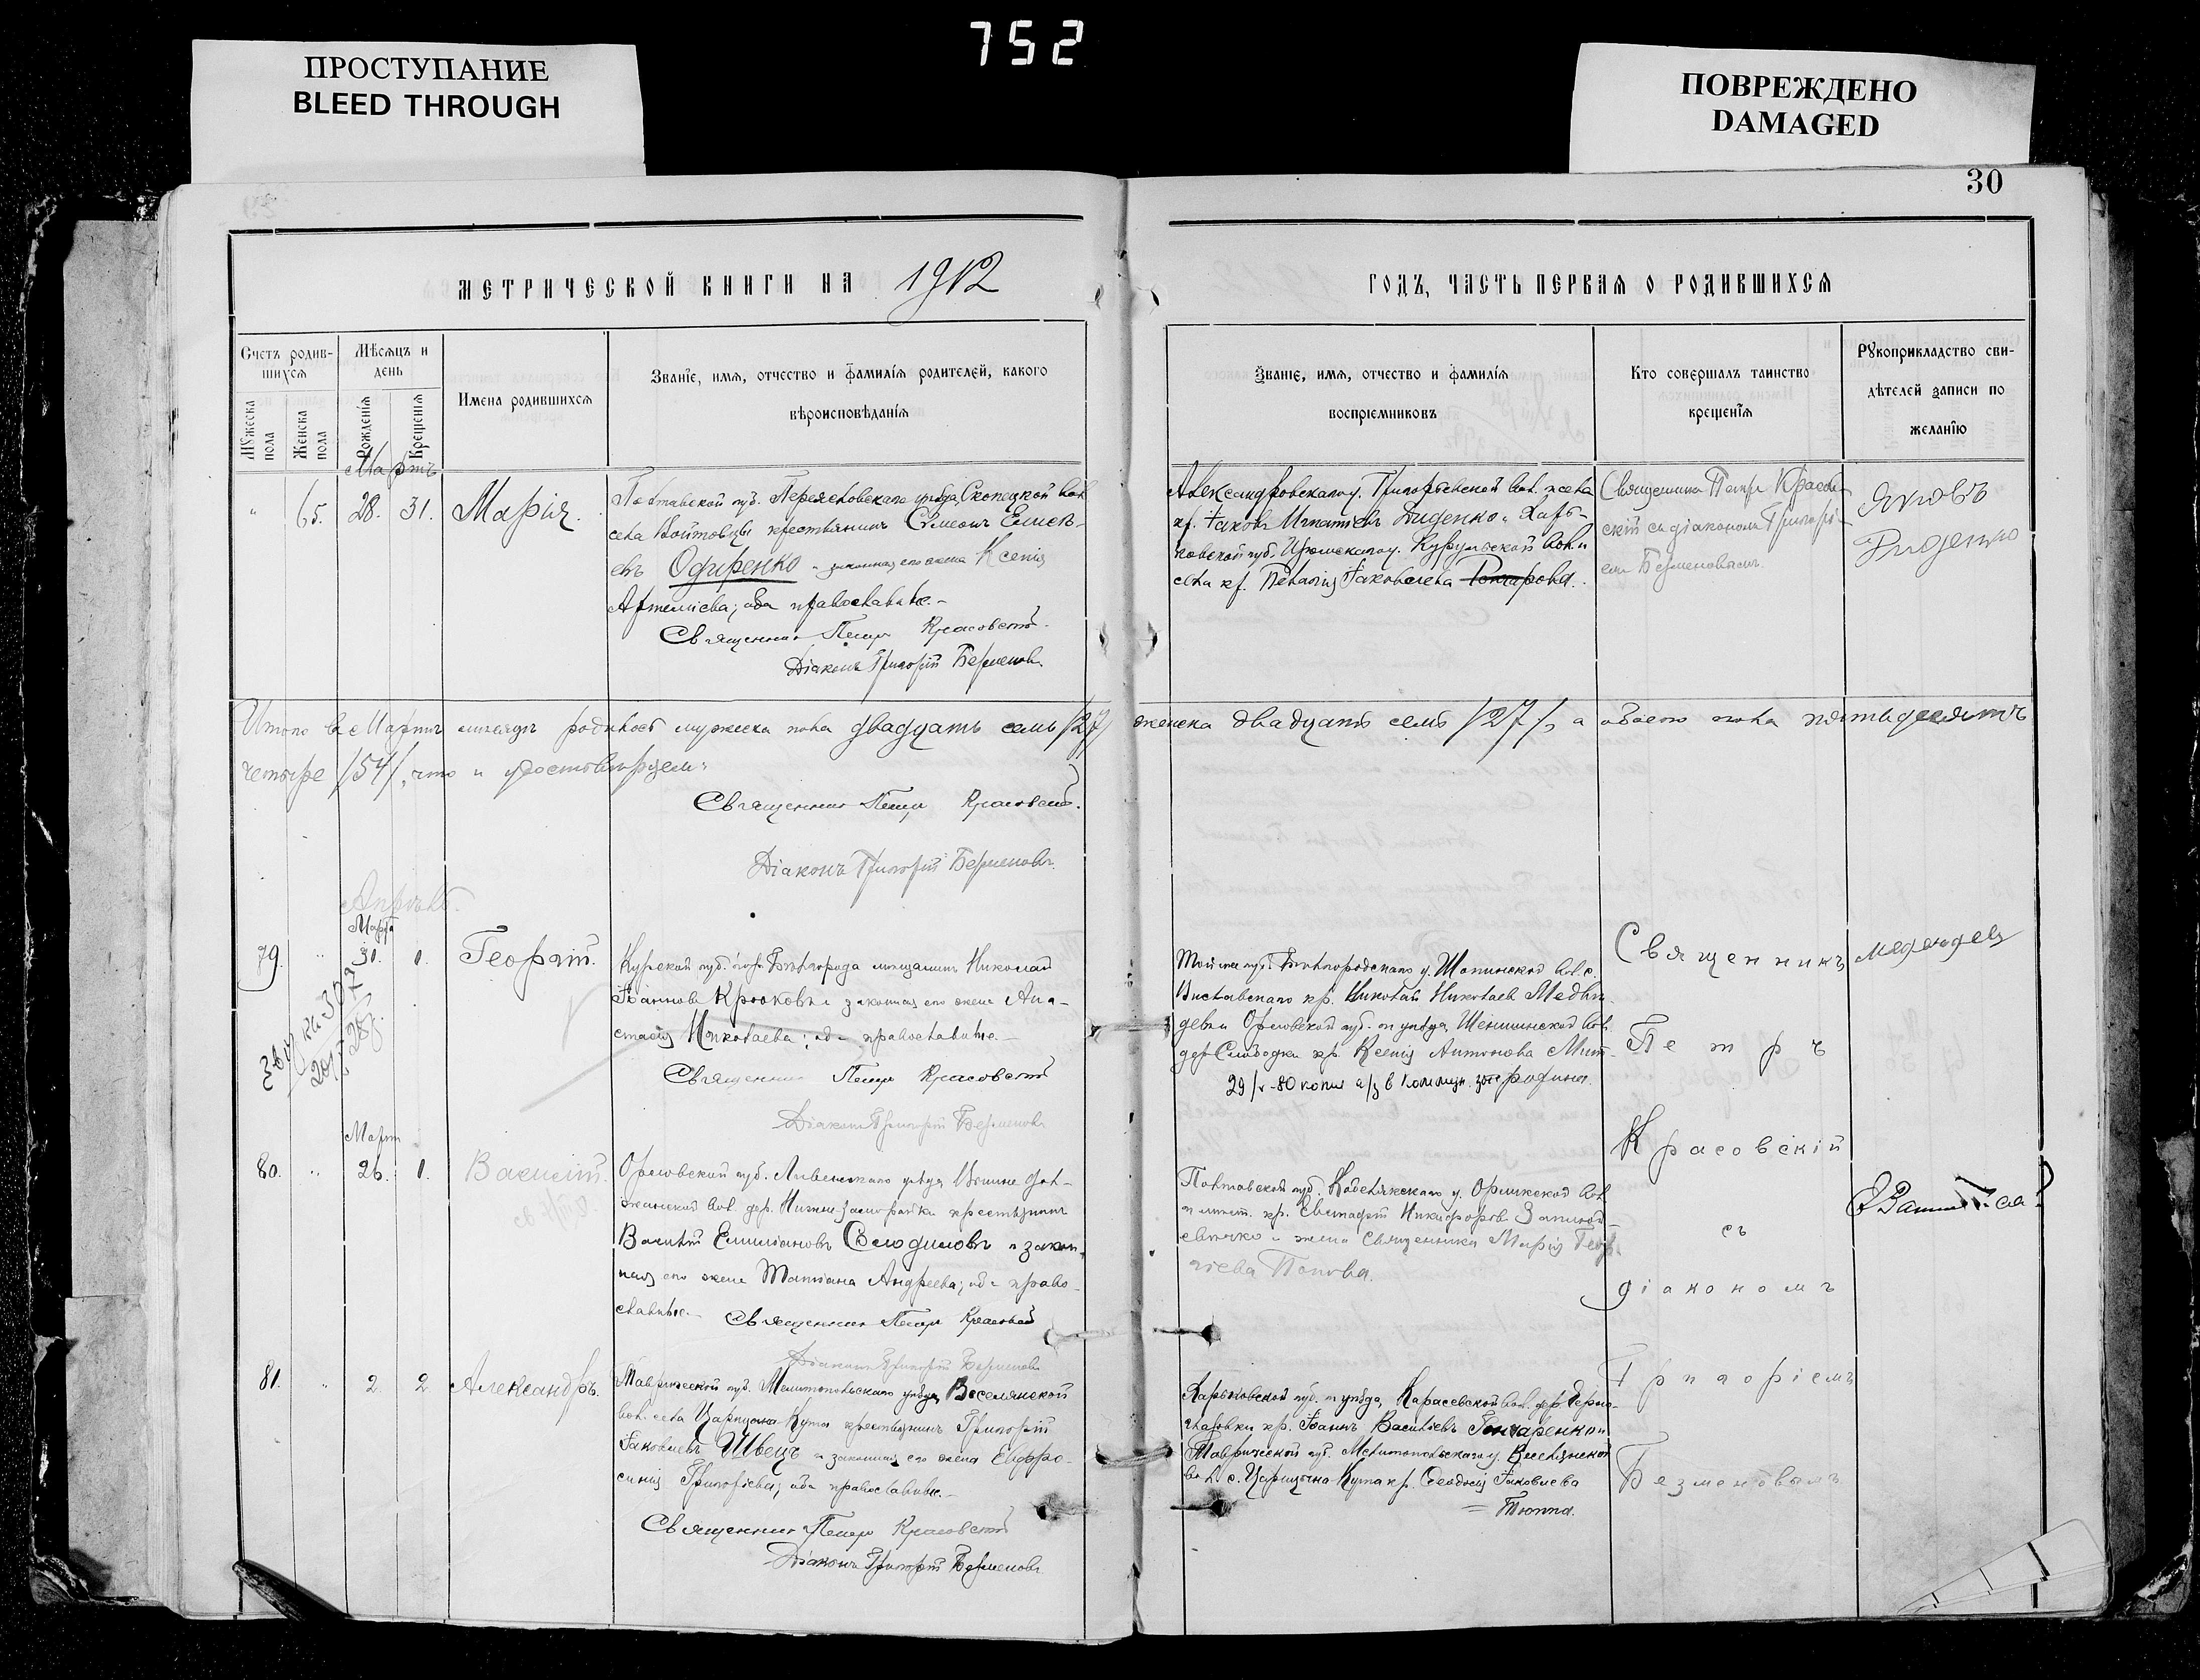 752
ПРОСТУПАНИЕ
BLEED THROUGH
ПОВРЕЖДЕНО
DAMAGED
30
МЕТРИЧЕСКОЙ КНИГИ НА 1912
ГОДЪ, ЧАСТЬ ПЕРВАЯ О РОДИВШИХСЯ
Счетъ родив-
шихся
Мужеска пола
Женска пола
Мѣсяцъ и
день
Рожденія
Крещенія
Имена родившихся
Званіе, имя, отчество и фамилія родителей, какого
вѣроисповѣданія
Званіе, имя, отчество и фамилія
воспріемниковъ
Кто совершалъ таинство
крещенія
Рукоприкладство сви-
дѣтелей записи по
желанію
Мартъ
" 65. 28. 31. Марія.
Полтавской губ. Переясловскаго уѣзда, вол.
села Войтовцы крестьянинъ Симеонъ Елисѣ-
евъ и законная его жена Ксенія
Артеміева; оба православные.-
Священникъ Петръ Красовскій.
Діаконъ Григорій Безменовъ.
Александровскаго у. Григорьевской вол. и села
кр. Іаковъ Игнатіевъ Диденко и Харь-
ковской губ. Изюмскаго у. Курульской вол. и
села кр. Пелагія Іаковлева Гончарова.
Священникъ Петръ Красов-
скій съ діакономъ Григорі-
емъ Безменовымъ.
Яковъ
Диденко
Итого въ Мартѣ мѣсяцѣ родилось мужеска пола двадцать семь /27/ женска двадцать семь /27/, а обоего пола пятьдесятъ
четыре /54/, что и удостовѣряемъ:
Священникъ Петръ Красовскій.
Діаконъ Григорій Безменовъ.
Апрѣль.
Марта
79. " 31. 1. Георгій.
Курской губ. гор. Бѣлгорода мѣщанинъ Николай
Іоанновъ Крюковъ и законная его жена Ана-
стасія Николаева; оба православные.-
Священникъ Петръ Красовскій
Діаконъ Григорій Безменовъ
Той же губ. Бѣлгородскаго у. Шопинской вол. с.
кр. Николай Николаевъ Медвѣ-
девъ и Орловской губ. и уѣзда, вол.
дер. Слободки кр. Ксенія Антонова
Священникъ
Петръ
Красовскій
съ
діакономъ
Григоріемъ
Безменовымъ
Март
80. " 26. 1. Василій.
Орловской губ. Ливенскаго уѣзда,
вол. дер. крестьянинъ
Василій Емиліановъ и закон-
ная его жена Татіана Андреева; оба право-
славные.- Священникъ Петръ Красовскій
Діаконъ Григорій Безменовъ
Полтавской губ. Кобелякскаго у. Орликской вол.
и мѣст. кр. Евстафій Никифоровъ
и жена священника Марія
Попова.
81. " 2. 2. Александръ.
Таврической губ. Мелитопольскаго уѣзда, Веселянской
вол. села Царицына-Кута крестьянинъ Григорій
Іаковлевъ Швецъ и законная его жена Евфро-
синія Григорьева; оба православные.-
Священникъ Петръ Красовскій
Діаконъ Григорій Безменовъ
Харьковской губ. и уѣзда, вол. дер.
кр. Іоаннъ Васильевъ Гончаренко и
Таврической губ. Мелитопольскаго у. Веселянской
вол. с. Царицына-Кута кр. Ѳеодосія Іаковлева